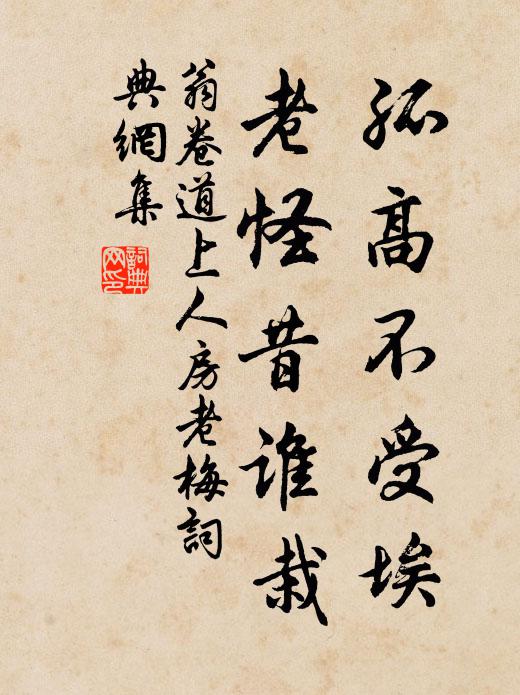 孤高不受埃
老怪昔谁栽
翁卷道上人房老梅詞
典網集
詞典網印